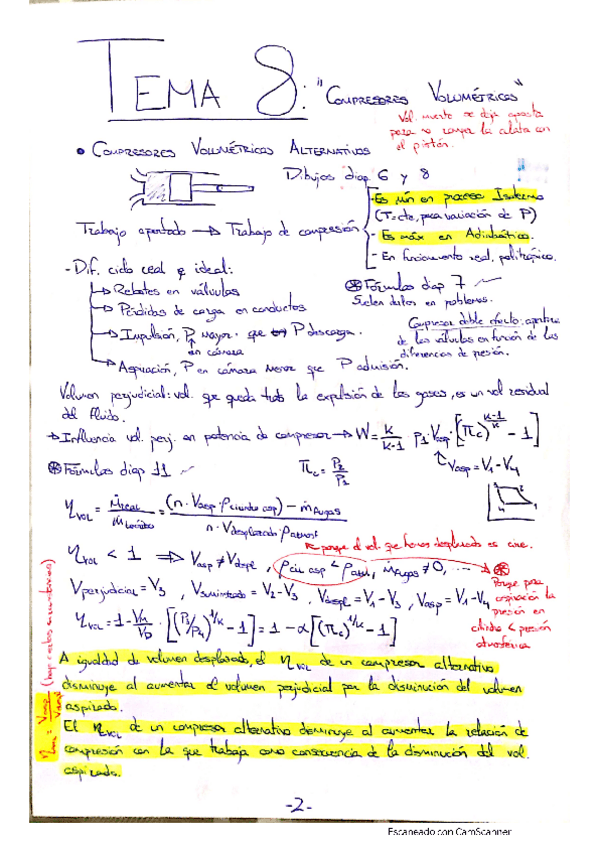 TEMA 8: "COMPRESORES VOLUMÉTRICOS"
Vol. muerto se deja aposta
para no romper la culata con
el pistón.
• COMPRESORES VOLUMÉTRICOS ALTERNATIVOS
Dibujos diap 6 y 8
Trabajo aportado → Trabajo de compresión
- Es mín en proceso Isotermo
(T=cte, para variación de P)
- Es máx en Adiabático.
- En funcionamiento real, politrópico.
- Dif. ciclo real e ideal:
→ Rebotes en válvulas
→ Pérdidas de carga en conductos
→ Impulsión, P mayor que P descarga.
en cámara
→ Aspiración, P en cámara menor que P admisión.
⊛ Fórmulas diap 7
Suelen datos en problemas.
Compresor doble efecto: apertura
de las válvulas en función de las
diferencias de presión.
Volumen perjudicial: vol. que queda tras la expulsión de los gases, es un vol residual
del fluido.
→ Influencia vol. perj. en potencia de compresor → W = K/K-1 · P1 · Vasp · [(πc)^(K-1/K) - 1]
⊛ Fórmulas diap 11
πc = P2/P1
Vasp = V1 - V4
ηvol = ṁreal / ṁteórico = (n · Vasp · ρcilindro asp) - ṁfugas / n · Vdesplazado · ρatmosf
porque el vol. que hemos desplazado es aire.
ηvol < 1 ⇒ Vasp ≠ Vdespl, ρcil asp < ρatm, ṁfugas ≠ 0, ... ⊛
Vperjudicial = V3, Vsuministrado = V2 - V3, Vdespl = V1 - V3, Vasp = V1 - V4
Porque para
aspiración la
presión en
cilindro < presión
atmosférica
ηvol = 1 - Vn/VD · [(P2/P1)^(1/K) - 1] = 1 - α [(πc)^(1/K) - 1]
A igualdad de volumen desplazado, el ηvol de un compresor alternativo
disminuye al aumentar el volumen perjudicial por la disminución del volumen
aspirado.
El ηvol de un compresor alternativo disminuye al aumentar la relación de
compresión con la que trabaja como consecuencia de la disminución del vol.
aspirado.
-2-
Escaneado con CamScanner